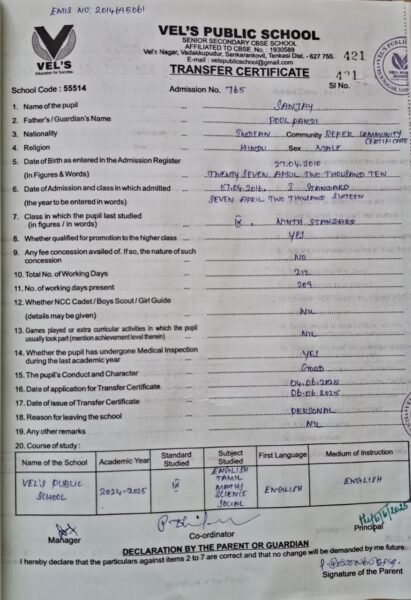 EMIS NO: 2014645061
VEL'S PUBLIC SCHOOL
SENIOR SECONDARY CBSE SCHOOL
AFFILIATED TO CBSE. No. : 1930589
Vel's Nagar, Vadakkupudur, Sankarankovil, Tenkasi Dist - 627 755.
E-mail : velspublicschool@gmail.com
421
VEL'S
Education for Success
TRANSFER CERTIFICATE
421
School Code : 55514 Admission No. 765 Sl No.
1. Name of the pupil ... SANJAY
2. Father's / Guardian's Name ... POOL PANDI
3. Nationality ... INDIAN Community REFER COMMUNITY CERTIFICATE
4. Religion ... HINDU Sex MALE
5. Date of Birth as entered in the Admission Register 27.04.2010
(In Figures & Words) ... TWENTY SEVEN APRIL TWO THOUSAND TEN
6. Date of Admission and class in which admitted ... 07.04.2016, I STANDARD
(the year to be entered in words) SEVEN APRIL TWO THOUSAND SIXTEEN
7. Class in which the pupil last studied
(in figures / in words) ... IX, NINTH STANDARD
8. Whether qualified for promotion to the higher class ... YES
9. Any fee concession availed of. If so, the nature of such
concession ... NO
10. Total No. of Working Days ... 212
11. No. of working days present ... 209
12. Whether NCC Cadet / Boys Scout / Girl Guide
(details may be given) ... NIL
13. Games played or extra curricular activities in which the pupil
usually took part (mention achievement level therein) ... NIL
14. Whether the pupil has undergone Medical Inspection
during the last academic year ... YES
15. The pupil's Conduct and Character ... GOOD
16. Date of application for Transfer Certificate ... 04.06.2025
17. Date of issue of Transfer Certificate ... 06.06.2025
18. Reason for leaving the school ... PERSONAL
19. Any other remarks ... NIL
20. Course of study :
Name of the School Academic Year Standard Studied Subject Studied First Language Medium of Instruction
VEL'S PUBLIC SCHOOL 2024-2025 IX ENGLISH TAMIL MATHS SCIENCE SOCIAL ENGLISH ENGLISH
Manager Co-ordinator Principal
DECLARATION BY THE PARENT OR GUARDIAN
I hereby declare that the particulars against items 2 to 7 are correct and that no change will be demanded by me future.
Signature of the Parent